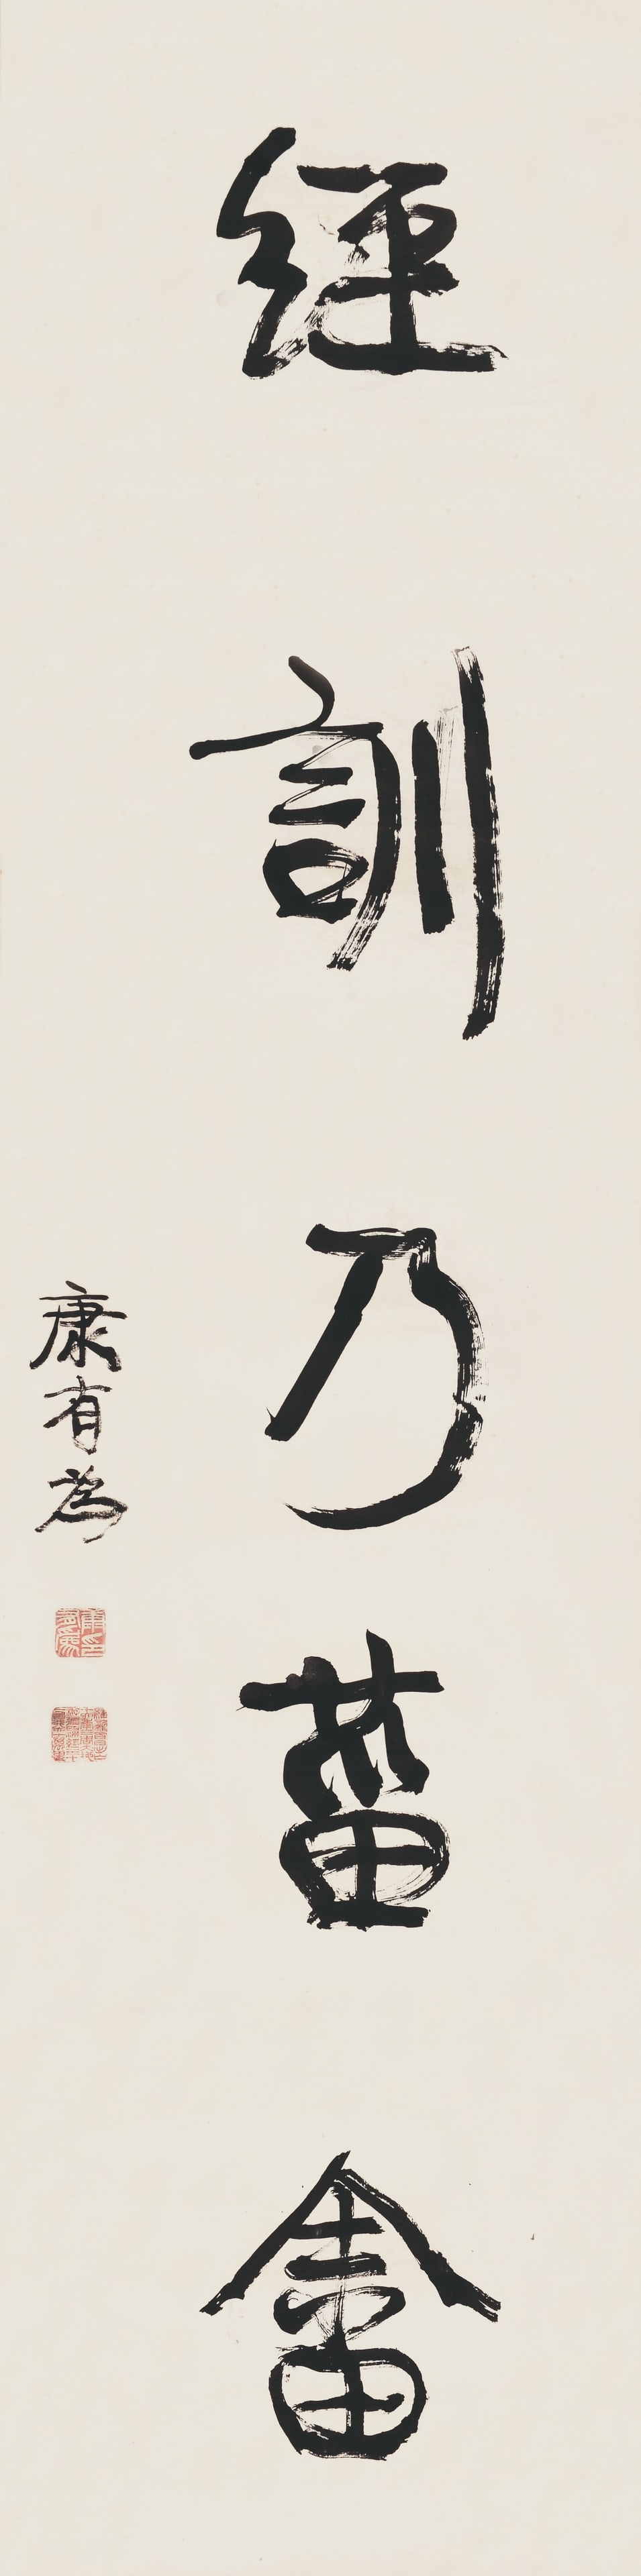 經訓乃菑畬
康有為